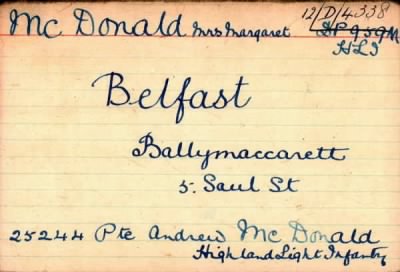 Mc Donald Mrs Margaret 12/D/4338
DP 959M
HLI
Belfast
Ballymaccarett
5. Saul St
25244 Pte Andrew Mc Donald
Highland Light Infantry